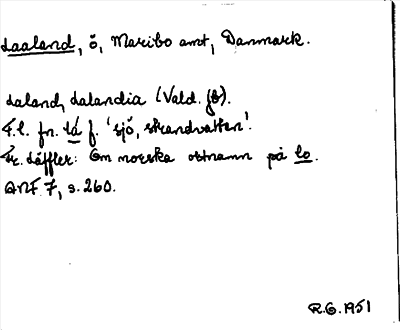 Laaland, ö, Maribo amt, Danmark.
Laland, Lalandia (Vald. jb).
F.l. fn. lá f. 'sjö, strandvatten'.
Fr. Läffler: Om norska ortnamn på lo.
ANF 7, s. 260.
R.G. 1951